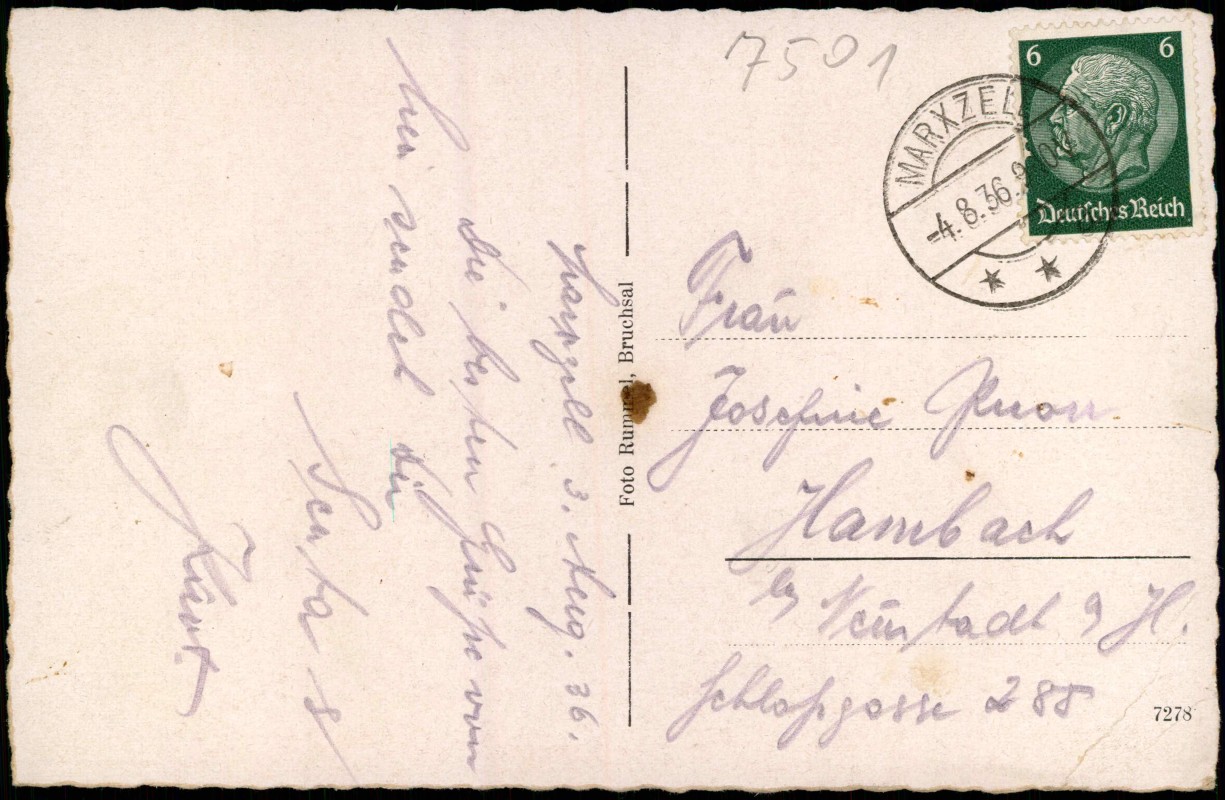 7501
6 6
Deutsches Reich
MARXZELL
-4.8.36.
Marxzell 3. Aug. 36.
Die besten Grüße von
hier sendet Dir
Kurt
Foto Rummel, Bruchsal
Frau
Josefine Knorr
Hambach
b/ Neustadt a H.
Schloßgasse 288
7278